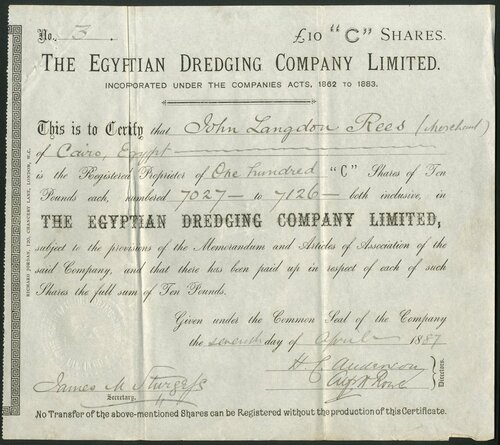 No. 3. £10 "C" SHARES.
THE EGYPTIAN DREDGING COMPANY LIMITED.
INCORPORATED UNDER THE COMPANIES ACTS, 1862 TO 1883.
This is to Certify that John Langdon Rees (Merchant)
of Cairo, Egypt
is the Registered Proprietor of One hundred "C" Shares of Ten
Pounds each, numbered 7027 — to 7126 — both inclusive, in
THE EGYPTIAN DREDGING COMPANY LIMITED,
subject to the provisions of the Memorandum and Articles of Association of the
said Company, and that there has been paid up in respect of each of such
Shares the full sum of Ten Pounds.
Given under the Common Seal of the Company
the seventh day of April 1887
H C Anderson
James M Sturgess
Secretary.
Directors.
No Transfer of the above-mentioned Shares can be Registered without the production of this Certificate.
RICHARD JORDAN 120, CHANCERY LANE, LONDON, W.C.